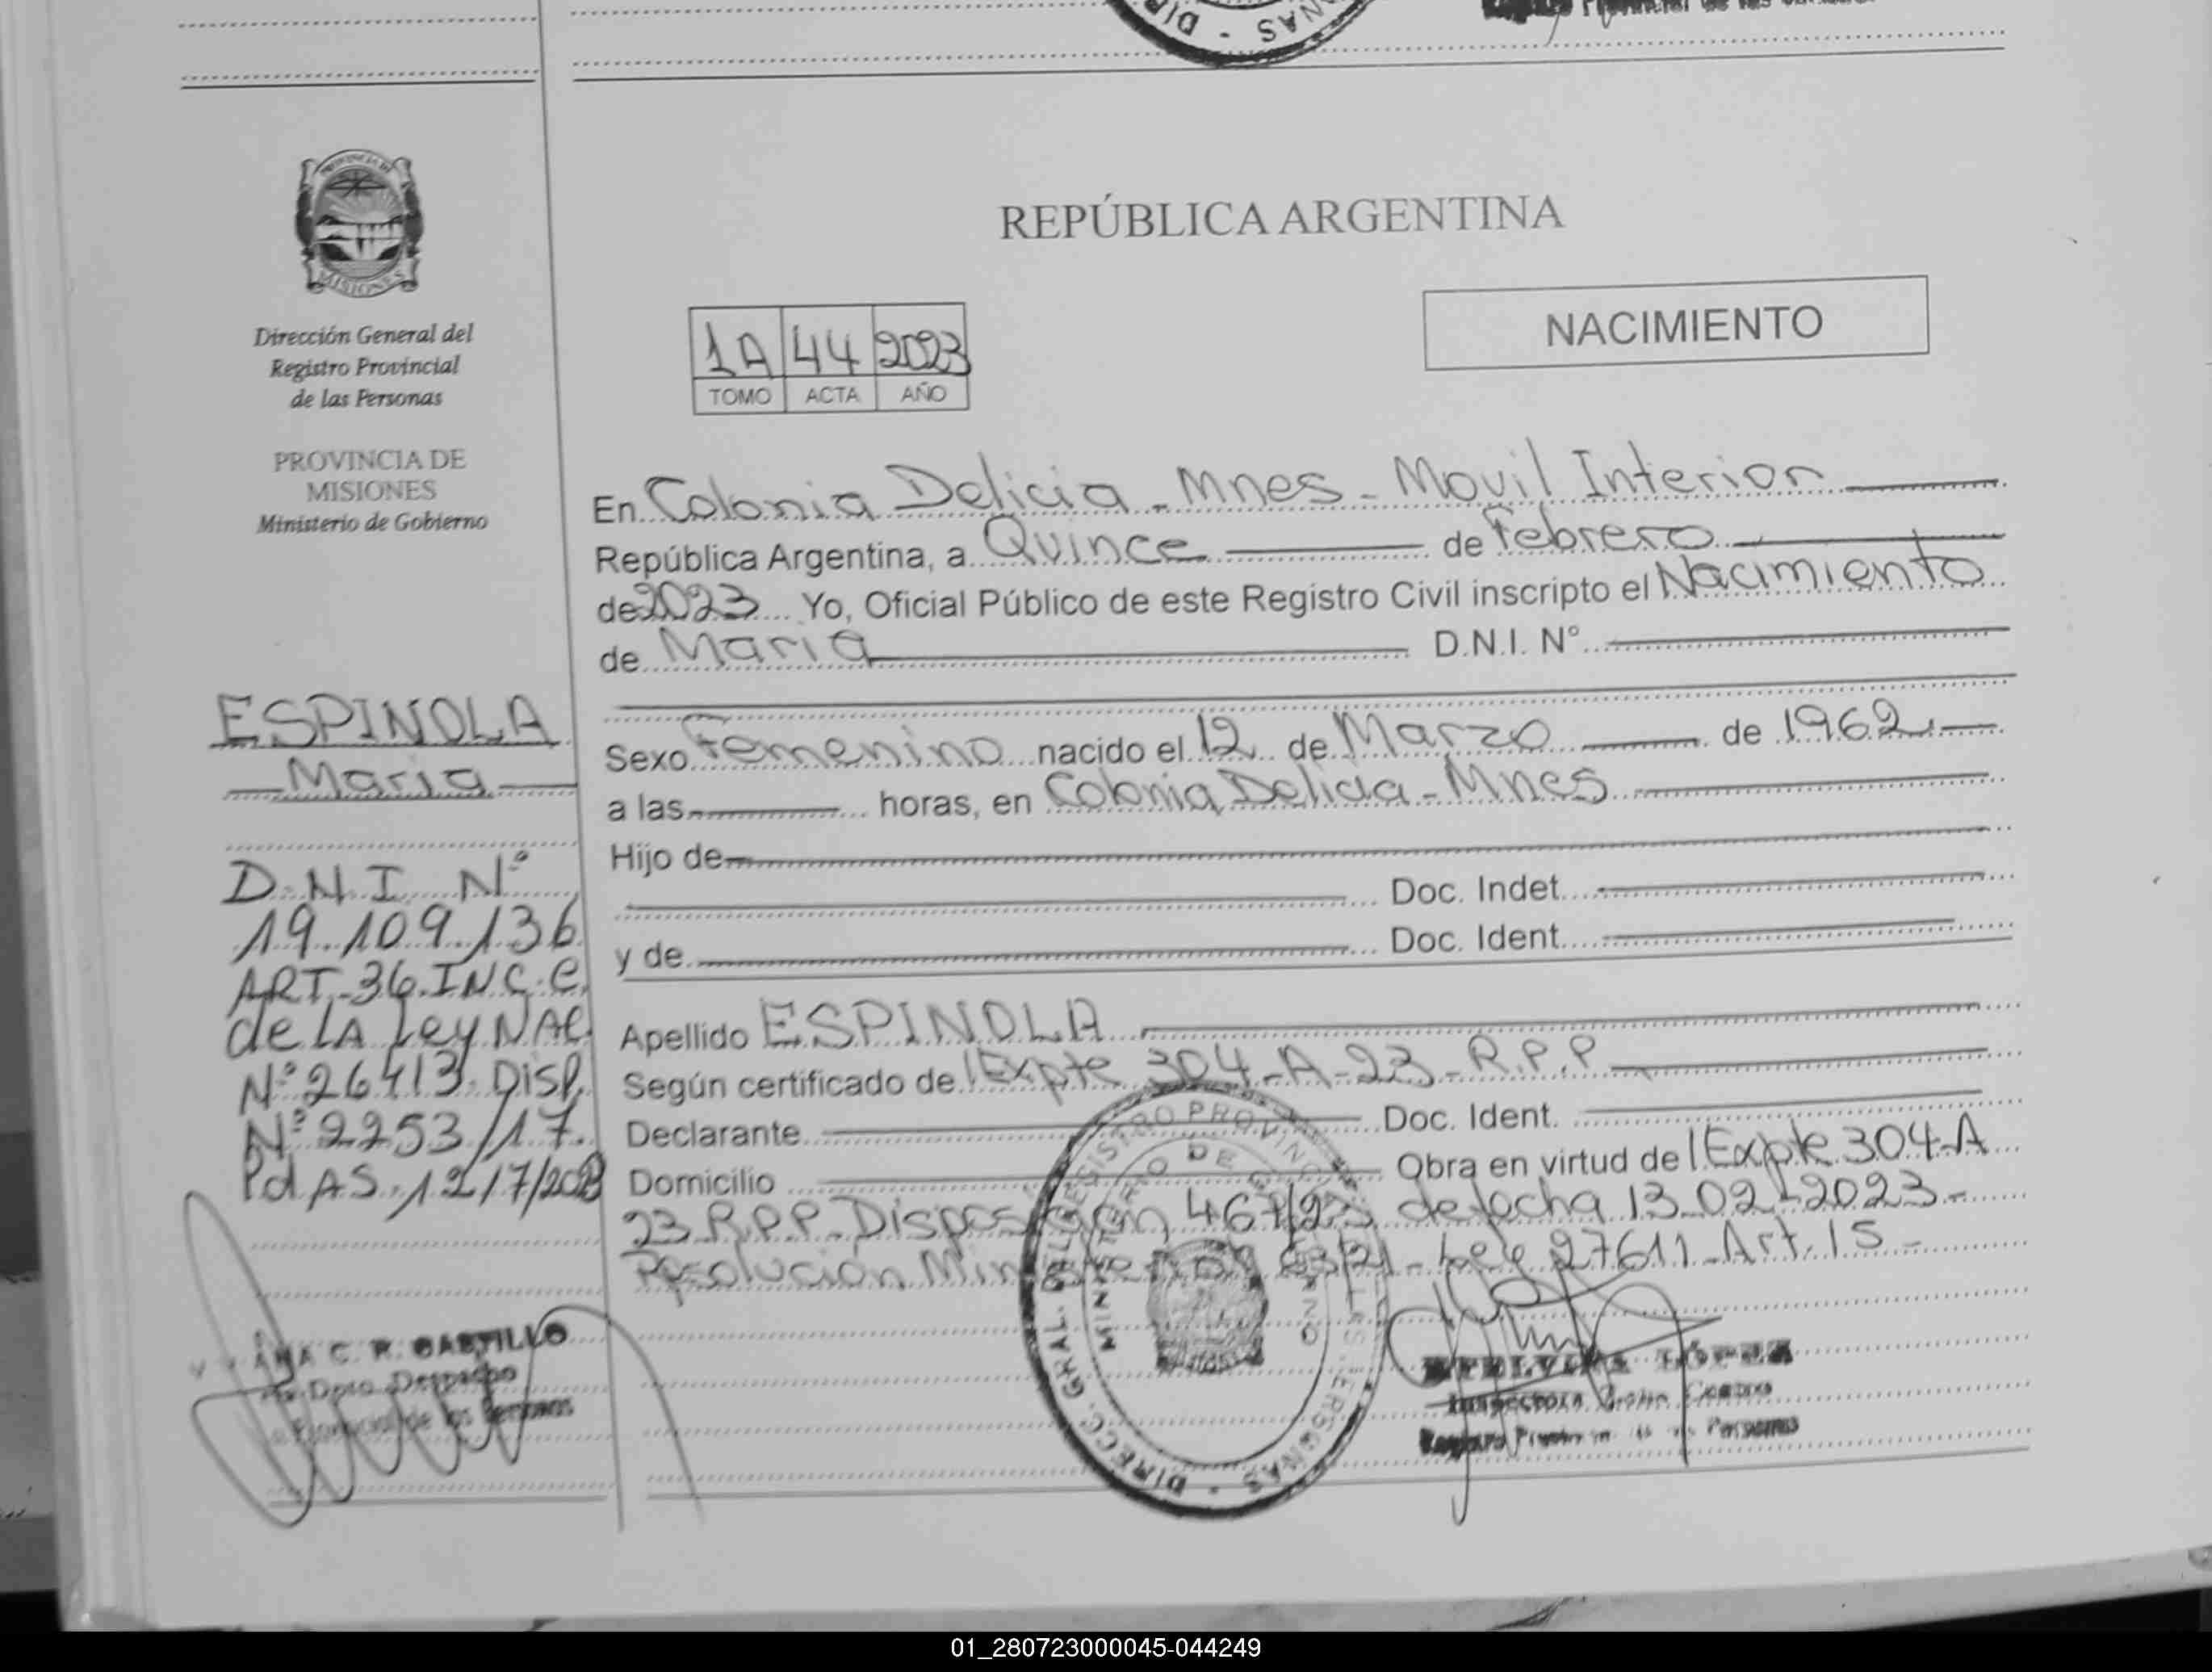 REPÚBLICA ARGENTINA
NACIMIENTO
1A 44 2023
TOMO ACTA AÑO
Dirección General del
Registro Provincial
de las Personas
PROVINCIA DE
MISIONES
Ministerio de Gobierno
ESPINOLA
Maria
D.N.I. N°
19.109.136
ART. 36. INC. C.
de LA Ley NAC.
N° 26413. DISP.
N° 2253/17.
Pd AS. 12/7/2023
C. R. CASTILLO
Dpto. Despacho
Provincial de las Personas
En Colonia Delicia - Mnes - Movil Interior
República Argentina, a Quince de Febrero
de 2023 Yo, Oficial Público de este Registro Civil inscripto el Nacimiento
de Maria D.N.I. N°
Sexo Femenino nacido el 12 de Marzo de 1962
a las horas, en Colonia Delicia - Mnes
Hijo de
Doc. Indet.
y de Doc. Ident.
Apellido ESPINOLA
Según certificado de Expte 304-A-23-R.P.P
Declarante Doc. Ident.
Domicilio Obra en virtud de Expte 304-A
23 R.P.P. Disposicion 467/23 de fecha 13-02-2023-
Resolución Ministerial - Ley 27611 - Art. 15 -
DIRECC. GRAL. DEL REGISTRO PROVINCIAL DE LAS PERSONAS
MINISTERIO DE GOBIERNO
LÓPEZ
Inspectora
Registro Provincial de las Personas
01_280723000045-044249